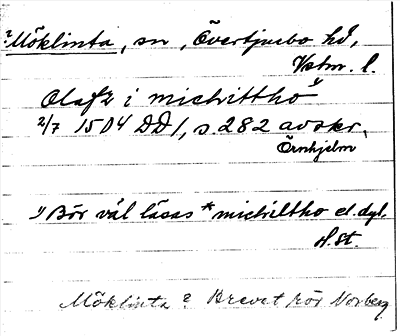 ? Möklinta, sn, Övertjurbo hd,
Vstm. l.
Olaff i michilttho 1)
2/7 1504 DD 1, s. 282 avskr.
Örnhjelm
1) Bör väl läsas * michiltho el. dyl.
H. St.
Möklinta? Brevet rör Norberg